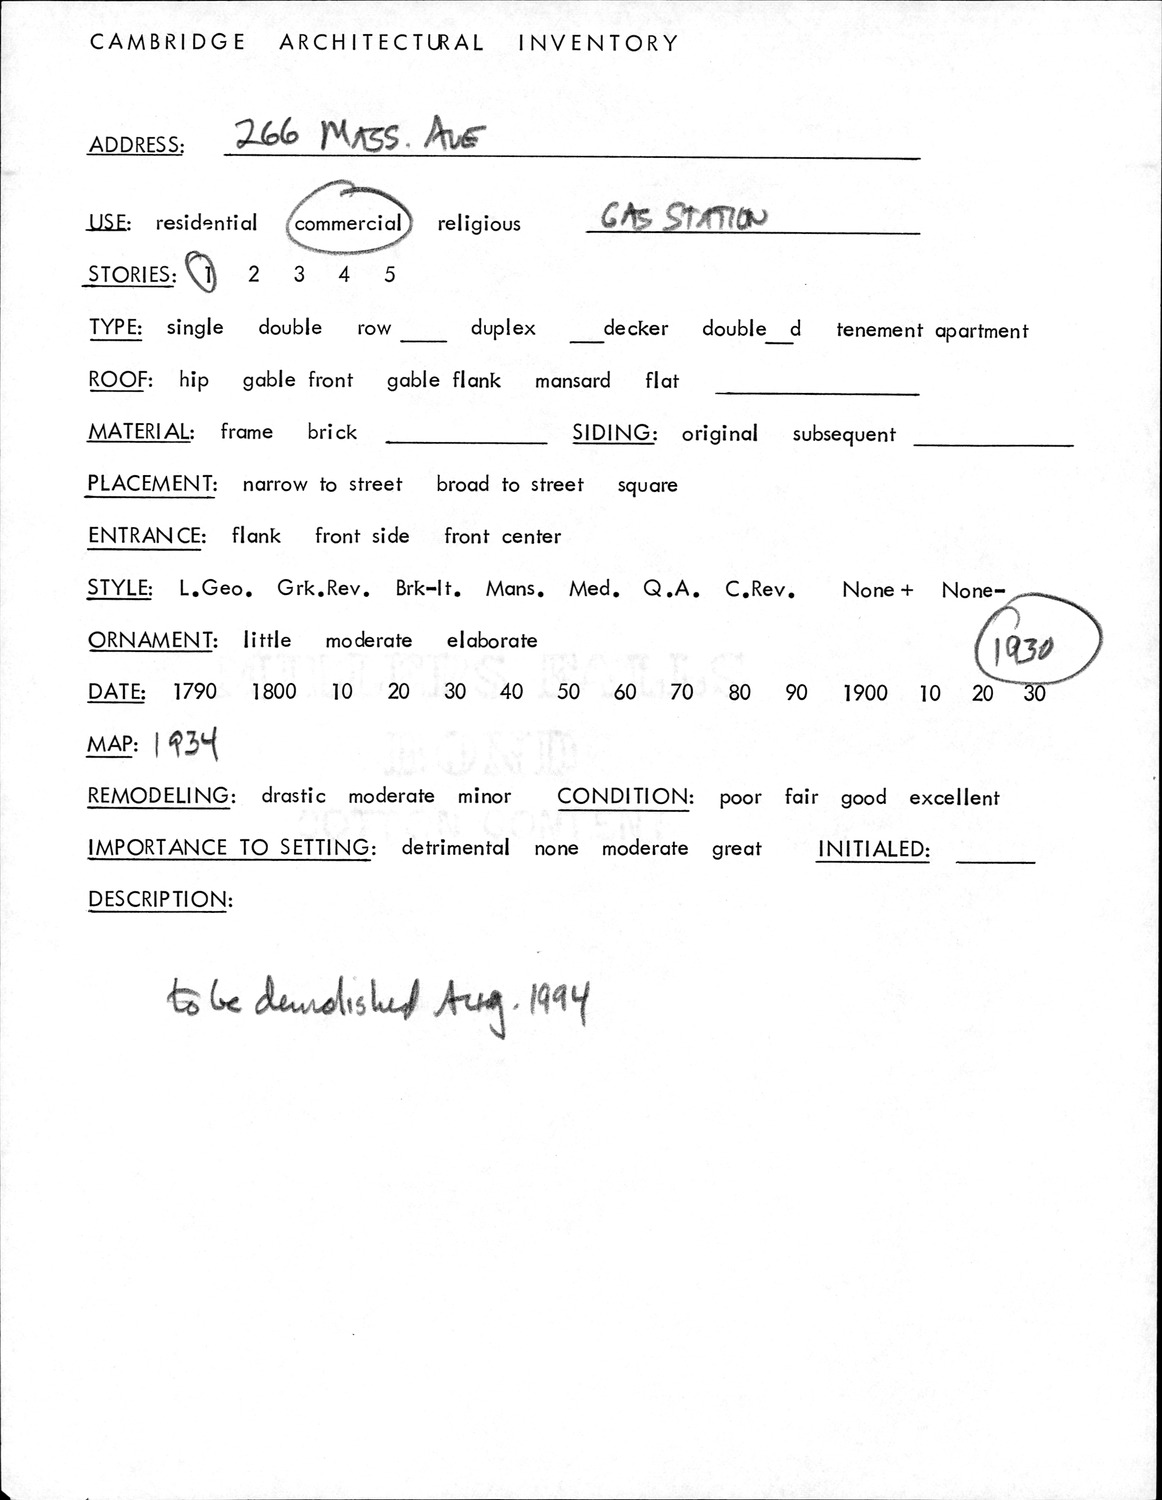 CAMBRIDGE ARCHITECTURAL INVENTORY
ADDRESS: 266 MASS. AVE
USE: residential commercial religious GAS STATION
STORIES: 1 2 3 4 5
TYPE: single double row ___ duplex ___decker double__d tenement apartment
ROOF: hip gable front gable flank mansard flat
MATERIAL: frame brick SIDING: original subsequent
PLACEMENT: narrow to street broad to street square
ENTRANCE: flank front side front center
STYLE: L.Geo. Grk.Rev. Brk-It. Mans. Med. Q.A. C.Rev. None+ None-
ORNAMENT: little moderate elaborate 1930
DATE: 1790 1800 10 20 30 40 50 60 70 80 90 1900 10 20 30
MAP: 1934
REMODELING: drastic moderate minor CONDITION: poor fair good excellent
IMPORTANCE TO SETTING: detrimental none moderate great INITIALED:
DESCRIPTION:
to be demolished Aug. 1994